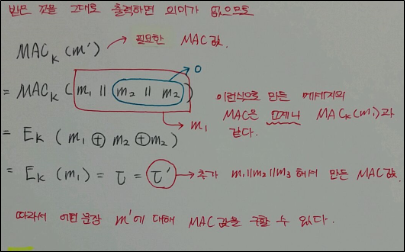 받은 것을 그대로 출력하면 의미가 없으므로
MAC_K(m') → 필요한 MAC값.
0
= MAC_K( m₁ || m₂ || m₂ )
m₁
이런식으로 만든 메세지의
MAC은 MAC_K(m₁)과
같다.
= E_K ( m₁ ⊕ m₂ ⊕ m₂ )
= E_K (m₁) = τ = τ' → 추가 m₁||m₂||m₃ 해서 만든 MAC값.
따라서 어떤 문장 m'에 대해 MAC값을 구할 수 있다.